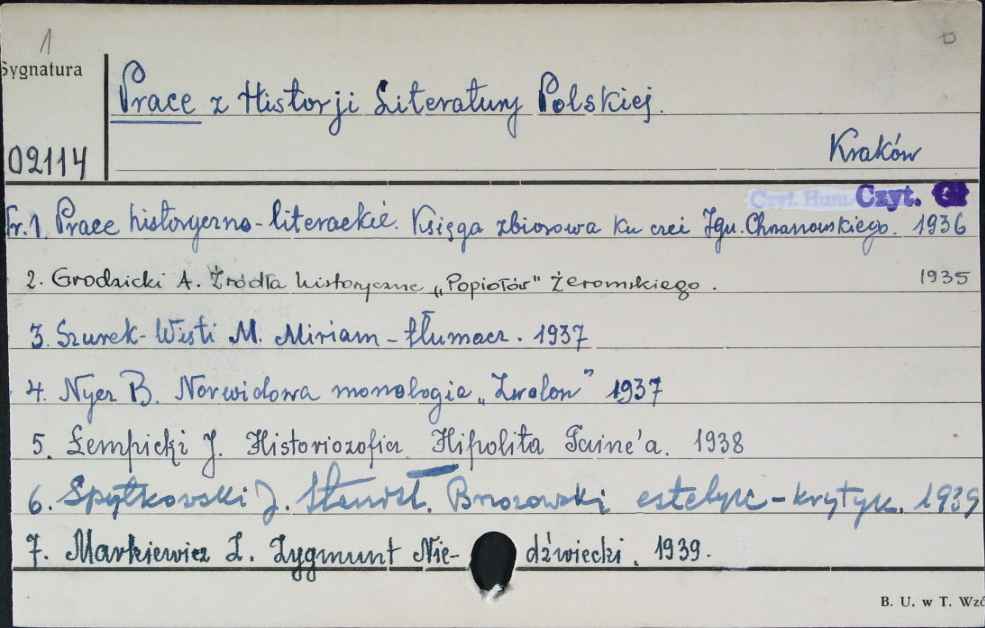 1
Sygnatura
Prace z Historji Literatury Polskiej.
02114
Kraków
Czyt. Hum. Czyt. Gł
Nr. 1. Prace historyczno-literackie. Księga zbiorowa ku czci Ign. Chrzanowskiego. 1936
2. Grodzicki A. Źródła historyczne „Popiołów" Żeromskiego. 1935
3. Szurek-Wisti M. Miriam - tłumacz. 1937
4. Nyer B. Norwidowa monologia „Zwolon" 1937
5. Łempicki J. Historiozofia Hipolita Taine'a. 1938
6. Spytkowski J. Stanisł. Brzozowski estetyk - krytyk. 1939
7. Markiewicz Z. Zygmunt Nie- dźwiecki. 1939.
B. U. w T. Wzó